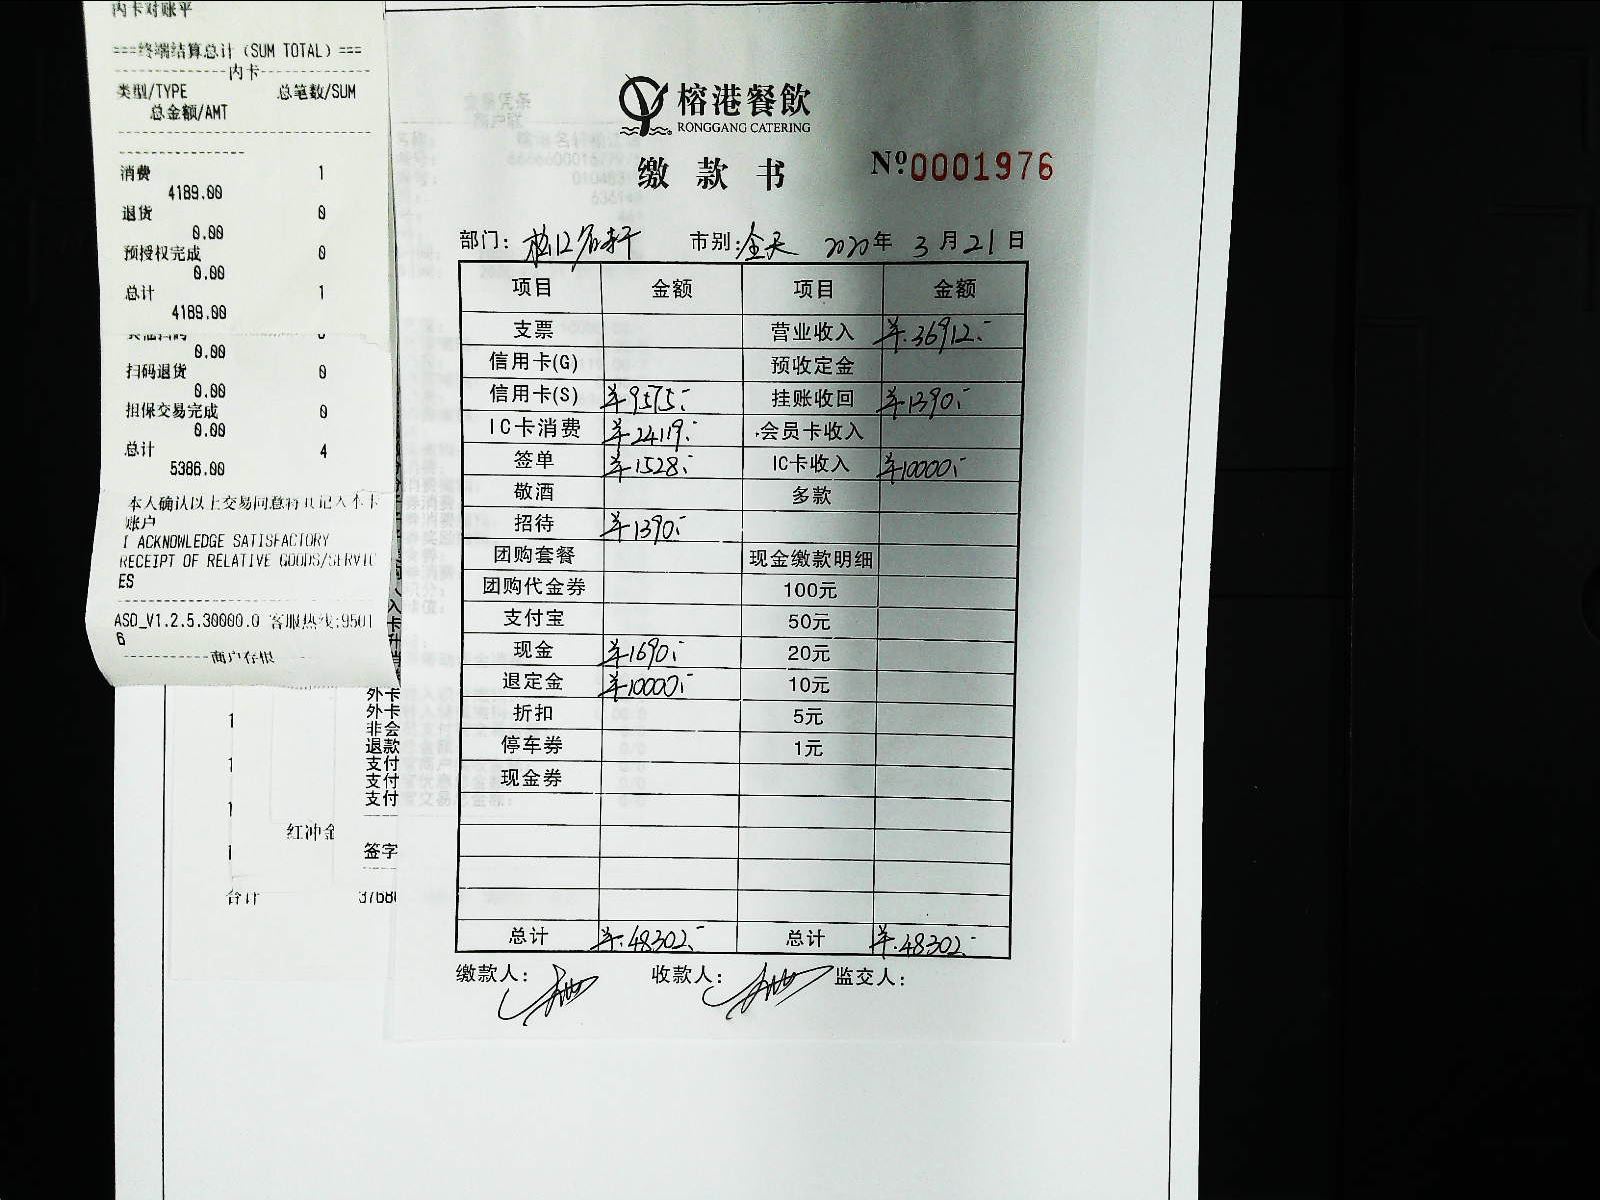 内卡对账平
===终端结算总计（SUM TOTAL）===
内卡
类型/TYPE 总笔数/SUM
总金额/AMT
消费 1
4189.00
退货 0
0.00
预授权完成 0
0.00
总计 1
4189.00
0.00
扫码退货 0
0.00
担保交易完成 0
0.00
总计 4
5386.00
本人确认以上交易同意将其记入本卡
账户
I ACKNOWLEDGE SATISFACTORY
RECEIPT OF RELATIVE GOODS/SERVIC
ES
ASD_V1.2.5.30000.0 客服热线:9501
6
商户存根
外卡
外卡
非会
退款
支付
支付
支付
红冲金
签字
合计 3768
榕港餐飲
RONGGANG CATERING
缴款书 Nº:0001976
部门: 松江名轩 市别:全天 2020年3月21日
项目 金额 项目 金额
支票 营业收入 ¥.36912.-
信用卡(G) 预收定金
信用卡(S) ¥9575.- 挂账收回 ¥1390.-
IC卡消费 ¥24119.- 会员卡收入
签单 ¥1528.- IC卡收入 ¥10000.-
敬酒 多款
招待 ¥1390.-
团购套餐 现金缴款明细
团购代金券 100元
支付宝 50元
现金 ¥1690.- 20元
退定金 ¥10000.- 10元
折扣 5元
停车券 1元
现金券
总计 ¥.48302.- 总计 ¥.48302.-
缴款人: 收款人: 监交人: